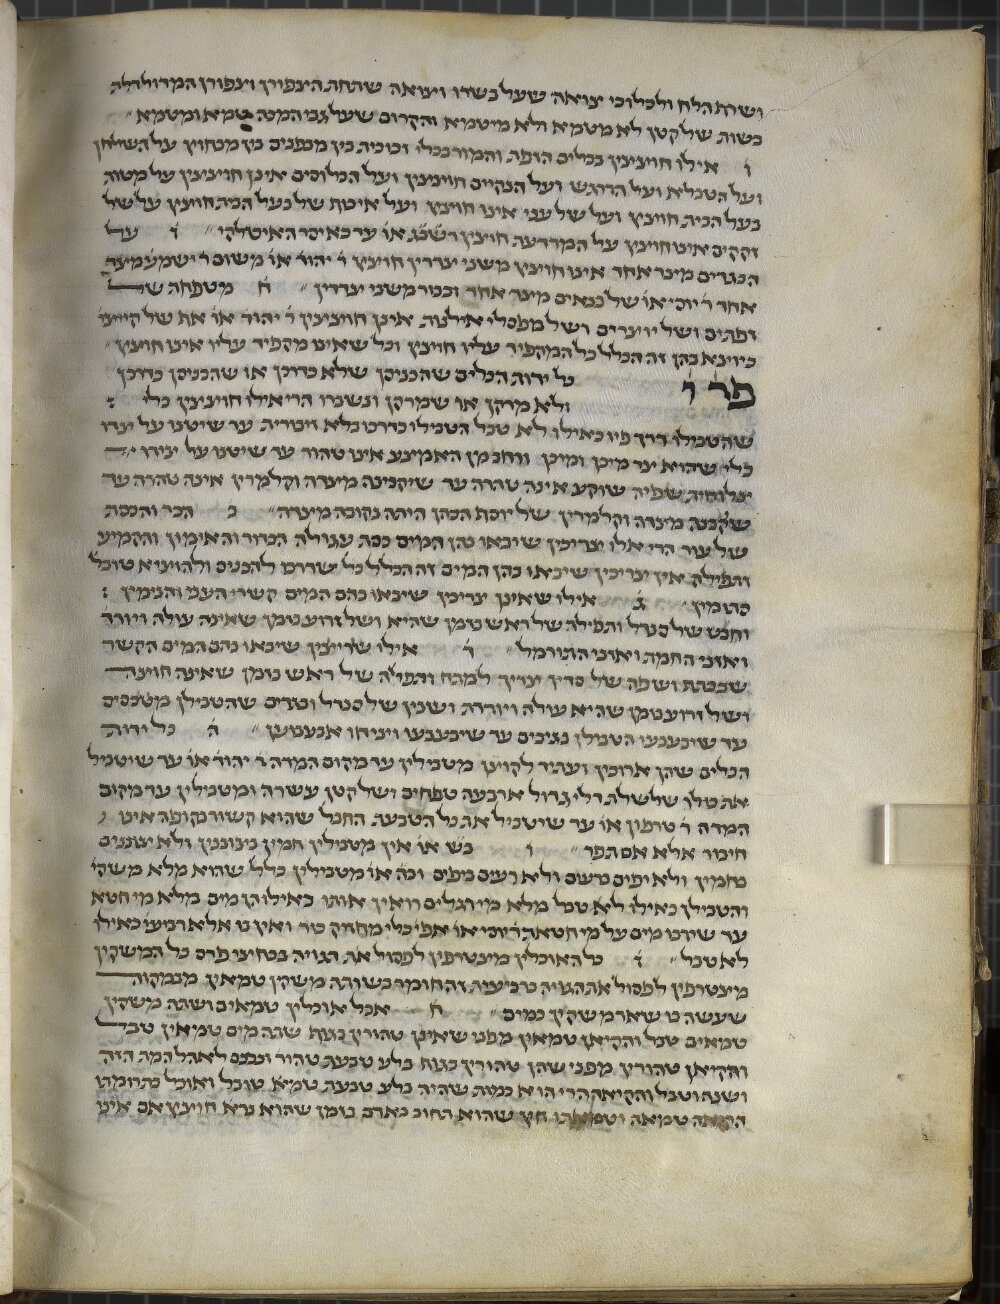 ושרת הלח ולכלוכי יצואה שעל בשרו ויצואה שתחת היצפורן ויצפורן המדולדלת
כשות של קטן לא מטמא ולא מיטמא והקרום שעל גבי המכה טמא ומטמא
ו אילו חויצצין בכלים הזפת והמור בכלי זכוכית בין מבפנים בין מבחוץ על השולחן
ועל הטבלא ועל הדרגש ועל הנקיים חויצצין ועל הבלוסים אינן חויצצין על מטות
בעל הבית חויצץ ועל של עני אינו חויצץ ועל איכוף של בעל הבית חויצץ על של
זקקים אינו חויצץ על המרדעת חויצץ רשב״ג או׳ עד כאיסר האיטלקי ז על
הבגדים מיצד אחד אינו חויצץ משני יצדדין חויצץ ר׳ יהוד׳ או׳ משום ר׳ ישמעא׳ מיצד
אחד ר׳ יוסי או׳ של בנאים מיצד אחד ושל בור משני יצדדין ח מטפחות של
זפתים ושל יויצרים ושל מפסלי אילנות אינן חויצצין ר׳ יהוד׳ או׳ אף של קייצין
כיויצא בהן זה הכלל כל המקפיד עליו חויצץ וכל שאינו מקפיד עליו אינו חויצץ
פר׳ י כל ידות הכלים שהכניסן שלא כדרכן או שהכניסן כדרכן
ולא מרקן או שמרקן ונשברו הרי אילו חויצצין כלי
שהטבילו דרך פיו כאילו לא טבל הטבילו כדרכו בלא זיבורית עד שיטנו על יצדו
כלי שהוא יצר מיכן ומיכן ורחב מן האמיצע אינו טהור עד שיטנו על יצידו
יצלוחית שפיה שוקע אינה טהרה עד שיקבנה מיצדה וקלמרין אינה טהרה עד
שיקבנה מיצדה וקלמרין של יוסף הכהן היתה נקובה מיצדה ב הכר והכסת
של עור הרי אלו יצריכין שיבאו בהן המים כסת עגולה הכדור והאימון והקמיע
ותפילה אין יצריכין שיבאו בהן המים זה הכלל כל שדרכו להכניס ולהויציא טובל
סתומין ג אילו שאינן יצריכין שיבאו בהם המים קשרי העני והנימין
וחבט של סנדל ותפילה של ראש בזמן שהיא ושל זרוע בזמן שאינה עולה ויורד׳
ואזני החמת ואזני התורמל ד אילו שיריכין שיבאו בהם המים הקשר
שבכתף ושפה של סדין יצריך למתח ותפילה של ראש בזמן שאינה חויצה
ושל זרוע בזמן שהיא עולה ויורדת ושנצין של סנדל וכגדים שהטבילן מכבסים
עד שיבעבעו הטבילן נגיבים עד שיבעבעו ויניחו אבעבען ה כל ידות
הכלים שהן ארוכין ועתיד לקויצן מטבילין עד מקום המדה ר׳ יהוד׳ או׳ עד שיטביל
את כולו שלשלת דלי גדול ארבעה טפחים ושל קטן עשרה ומטבילין עד מקום
המדה ר׳ טרפון או׳ עד שיטביל את כל הטבעת החבל שהוא קשור בקופה אינו
חיבור אלא אם תפר ו בש׳ או׳ אין מטבילין חמין בצוננין ולא יצוננים
בחמין ולא יפים ברעים ולא רעים ביפים ובה׳ או׳ מטבילין כלל שהוא מלא משקי׳
והטבילן כאילו לא טבל מלא מי רגלים רואין אותו כאילו הן מים מלא מי חטא׳
עד שירבו מים על מי חטאת ר׳ יוסי או׳ אפי׳ כלי מחזיק כור ואין בו אלא רביעו׳ כאילו
לא טבל ז כל האוכלין מיצטרפין לפסול את הגויה בחיצי פרס כל המשקין
מיצטרפין לפסול את הגויה ברביעית זה חומר בשותה משקין טמאין מבמקוה
שעשה בו שאר משקין כמים ח אכל אוכלין טמאים ושתה משקין
טמאים טבל והקיאן טמאין מפני שאינן טהורין בגוף שתה מים טמאין טבל
והקיאן טהורין מפני שהן טהורין בגוף בלע טבעת טהור׳ ונכנס לאהל המת הזה
ושנה וטבל והקיאה הרי הוא כמות שהיה בלע טבעת טמא׳ טובל ואוכל בתרומתו
הקיאה טמאה וטמאתו חץ שהוא תחוב באדם בזמן שהוא נרא׳ חויצץ אם אינו